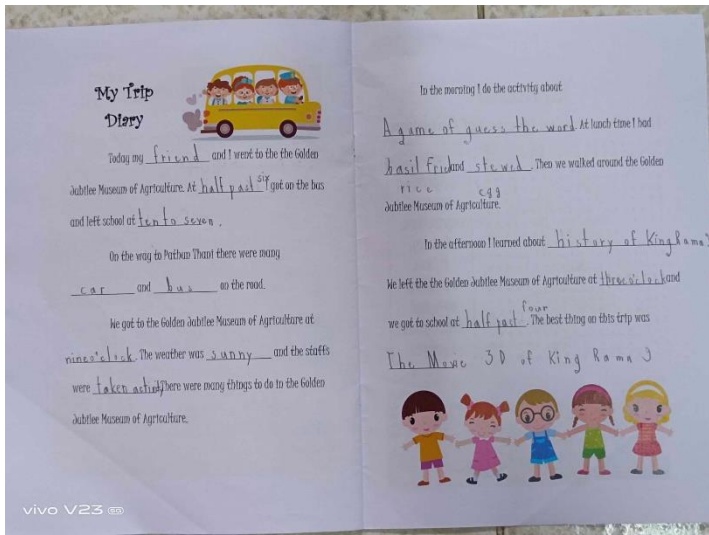 My Trip
Diary
Today my friend and I went to the the Golden
Jubilee Museum of Agriculture. At half past six I got on the bus
and left school at ten to seven.
On the way to Pathum Thani there were many
car and bus on the road.
We got to the Golden Jubilee Museum of Agriculture at
nine o'clock. The weather was sunny and the staffs
were There were many things to do in the Golden
Jubilee Museum of Agriculture.
In the morning I do the activity about
A game of guess the word. At lunch time I had
basil fried and stewed. Then we walked around the Golden
rice egg
Jubilee Museum of Agriculture.
In the afternoon I learned about history of King Rama 9
We left the the Golden Jubilee Museum of Agriculture at three o'clock and
we got to school at half past four. The best thing on this trip was
The Movie 3D of King Rama 9
vivo V23 5G